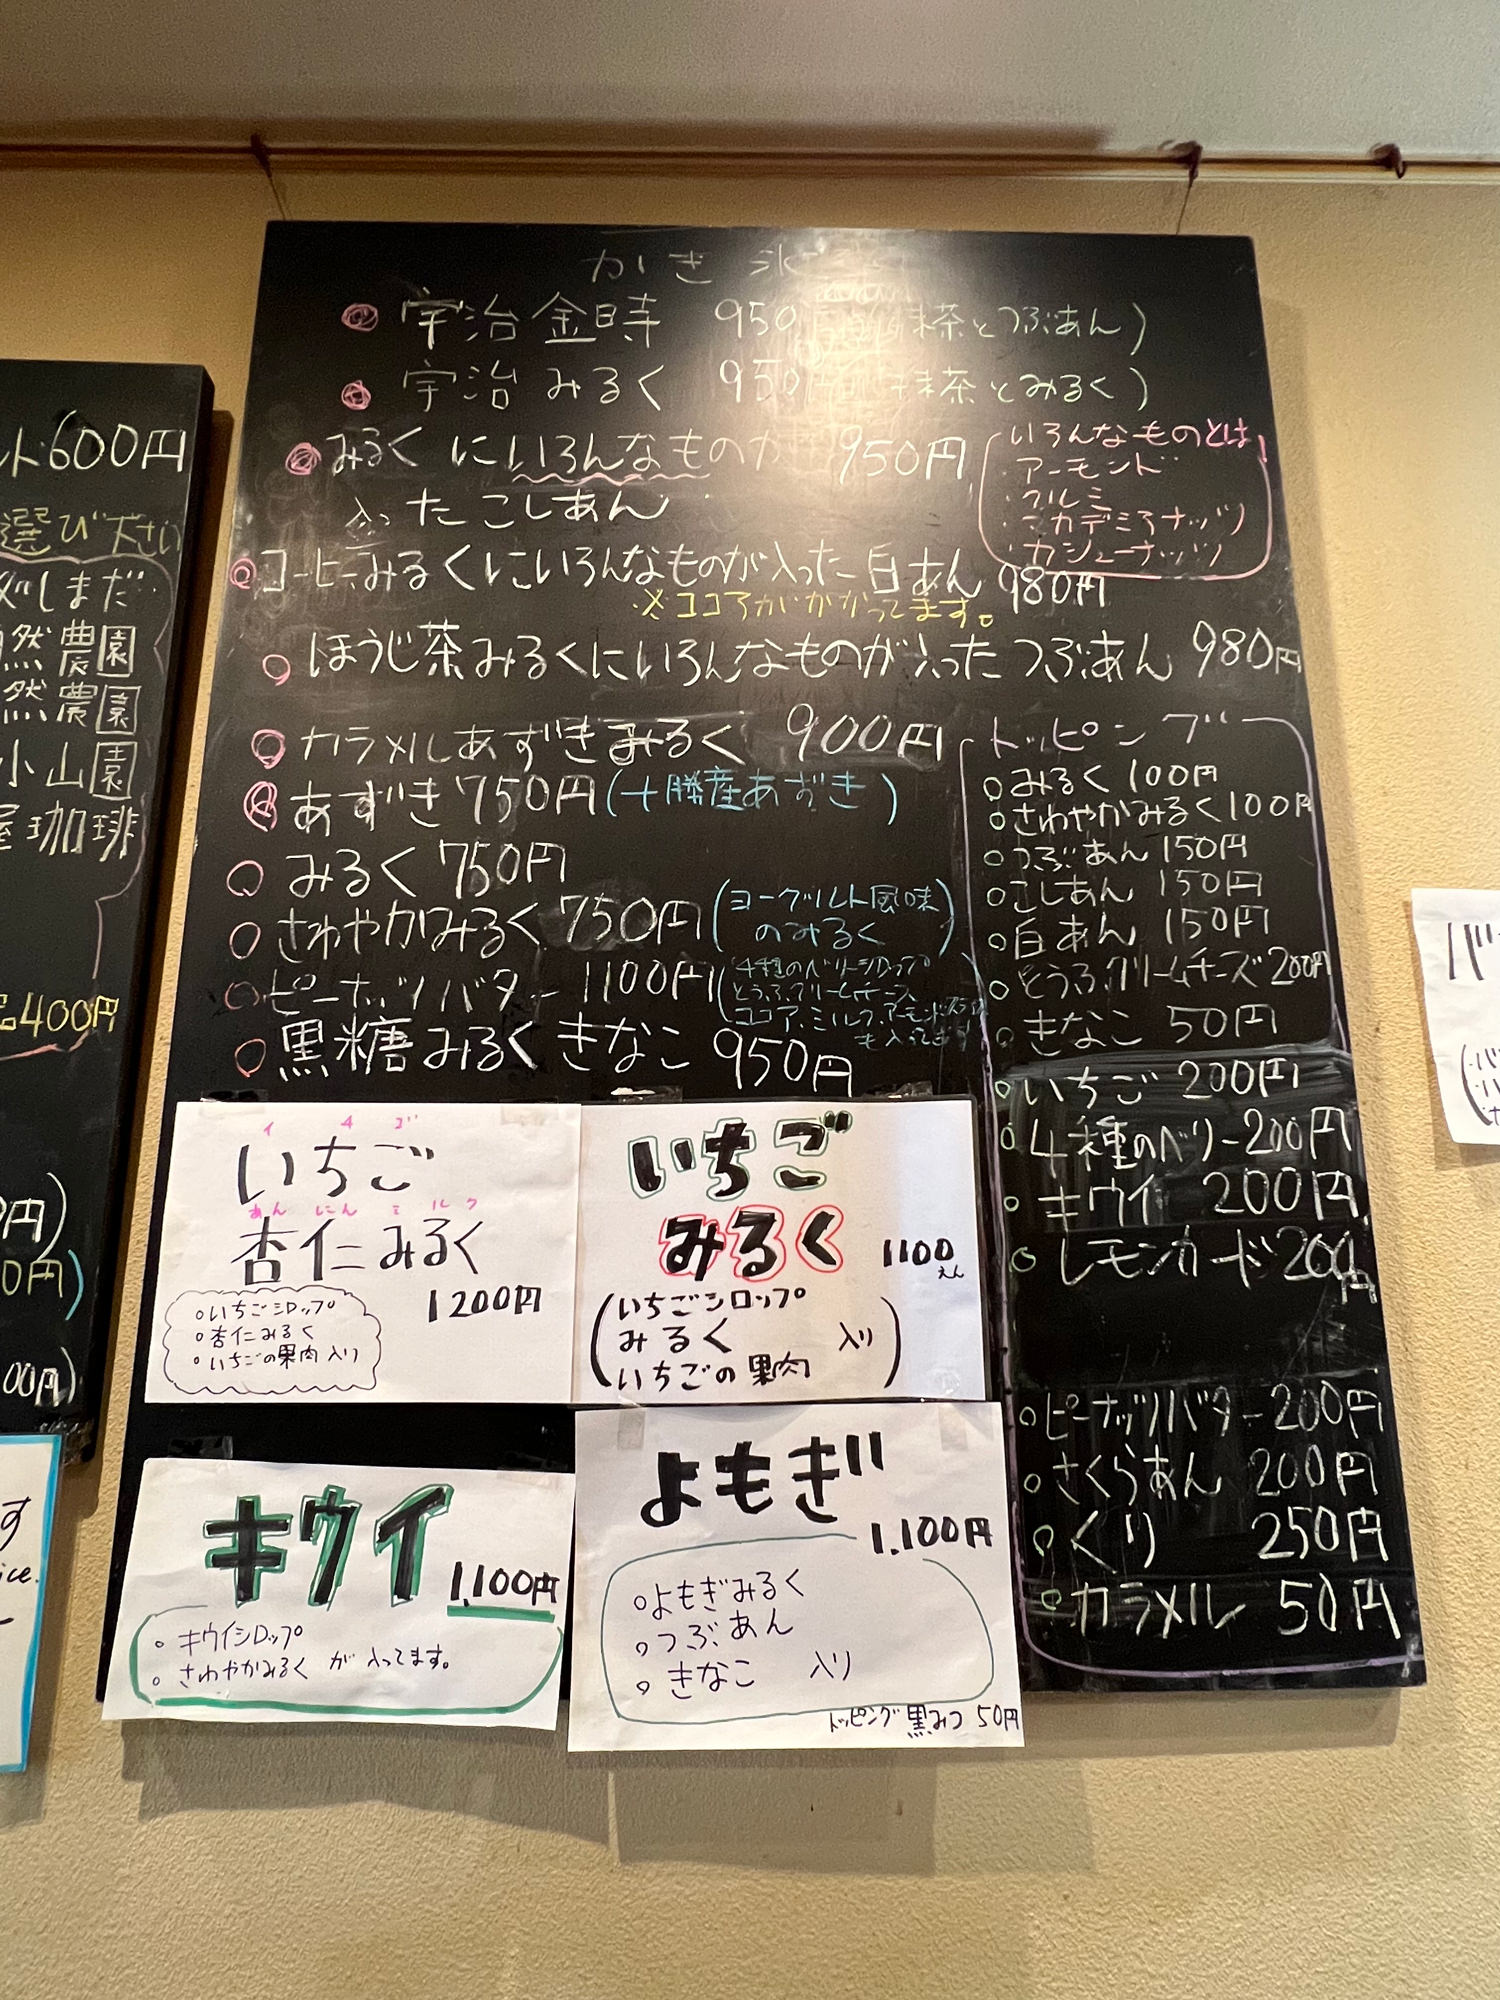 かき氷
宇治金時 950円(抹茶とつぶあん)
宇治みるく 950円(抹茶とみるく)
みるくにいろんなものが 950円
入ったこしあん
いろんなものとは!
・アーモンド
・クルミ
・マカデミアナッツ
・カシューナッツ
コーヒーみるくにいろんなものが入った白あん 980円
※ココアがかかってます。
ほうじ茶みるくにいろんなものが入ったつぶあん 980円
カラメルあずきみるく 900円
あずき 750円(十勝産あずき)
みるく 750円
さわやかみるく 750円(ヨーグルト風味
のみるく)
ピーナッツバター 1100円(4種のベリーシロップ
とうふクリームチーズ
ココア、ミルク、アーモンド
も入ってます
黒糖みるくきなこ 950円
トッピング
みるく 100円
さわやかみるく 100円
つぶあん 150円
こしあん 150円
白あん 150円
とうふクリームチーズ 200円
きなこ 50円
いちご 200円
4種のベリー 200円
キウイ 200円
レモンカード 200円
ピーナッツバター 200円
さくらあん 200円
くり 250円
カラメル 50円
イチゴ
いちご
あんにんミルク
杏仁みるく
1200円
いちごシロップ
杏仁みるく
いちごの果肉入り
いちご
みるく 1100
えん
(いちごシロップ
みるく 入り)
いちごの果肉
キウイ
1,100円
キウイシロップ
さわやかみるく が入ってます。
よもぎ
1,100円
よもぎみるく
つぶあん
きなこ 入り
トッピング 黒みつ 50円
ト 600円
選び下さい
しまだ
然農園
然農園
小山園
屋珈琲
品400円
円)
0円)
00円)
す
ice.
バ